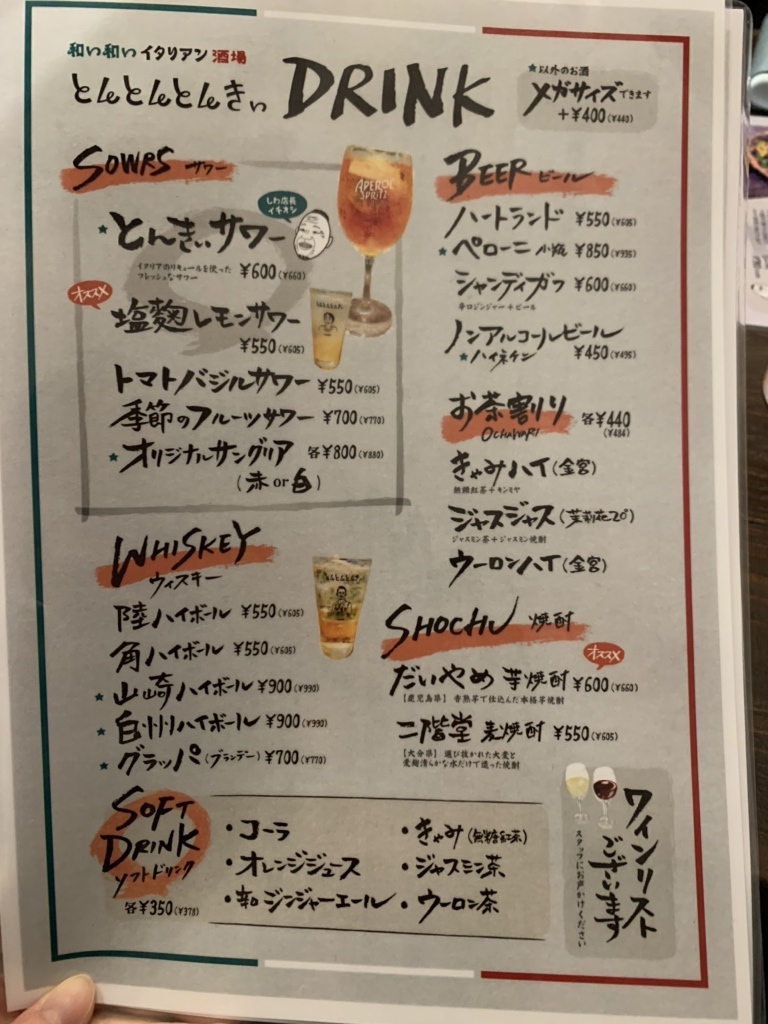 和い和いイタリアン酒場
とんとんとんきぃ
DRINK
★以外のお酒
メガサイズできます
+¥400(¥440)
SOWRS サワー
しわ店長
イチオシ
★とんきぃサワー
イタリアのリキュールを使った
フレッシュなサワー
¥600(¥660)
APEROL
SPRITZ
オススメ
塩麹レモンサワー
¥550(¥605)
トマトバジルサワー ¥550(¥605)
季節のフルーツサワー ¥700(¥770)
★オリジナルサングリア 各¥800(¥880)
(赤or白)
WHISKEY
ウィスキー
陸ハイボール ¥550(¥605)
角ハイボール ¥550(¥605)
★山崎ハイボール ¥900(¥990)
★白州ハイボール ¥900(¥990)
★グラッパ(ブランデー) ¥700(¥770)
BEER ビール
ハートランド ¥550(¥605)
★ペローニ 小瓶 ¥850(¥935)
シャンディガフ ¥600(¥660)
辛口ジンジャー+ビール
ノンアルコールビール
★ハイネケン ¥450(¥495)
お茶割り 各¥440
(¥484)
OCHAWARI
きゃみハイ(金宮)
無糖紅茶+キンミヤ
ジャスジャス(茉莉花20°)
ジャスミン茶+ジャスミン焼酎
ウーロンハイ(金宮)
SHOCHU 焼酎
オススメ
だいやめ 芋焼酎 ¥600(¥660)
【鹿児島県】 香熟芋で仕込んだ本格芋焼酎
二階堂 麦焼酎 ¥550(¥605)
【大分県】 選び抜かれた大麦と
麦麹清らかな水だけで造った焼酎
SOFT
DRINK
ソフトドリンク
各¥350(¥378)
・コーラ
・オレンジジュース
・辛口ジンジャーエール
・きゃみ(無糖紅茶)
・ジャスミン茶
・ウーロン茶
ワインリスト
ございます
スタッフにお声かけください